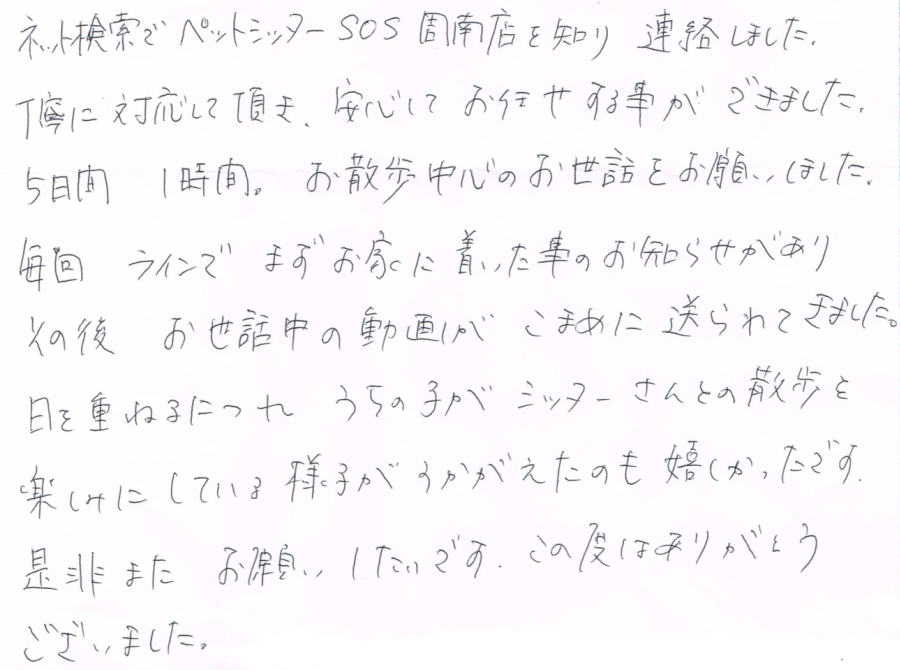 ネット検索でペットシッターSOS周南店を知り 連絡しました。
丁寧に対応して頂き、安心して お任せする事が できました。
5日間 1時間。 お散歩中心のお世話をお願いしました。
毎回 ラインで まずお家に着いた事のお知らせがあり
その後 お世話中の動画が こまめに送られてきました。
日を重ねるにつれ うちの子が シッターさんとの散歩を
楽しみにしている様子がうかがえたのも嬉しかったです。
是非また お願いしたいです。この度はありがとう
ございました。